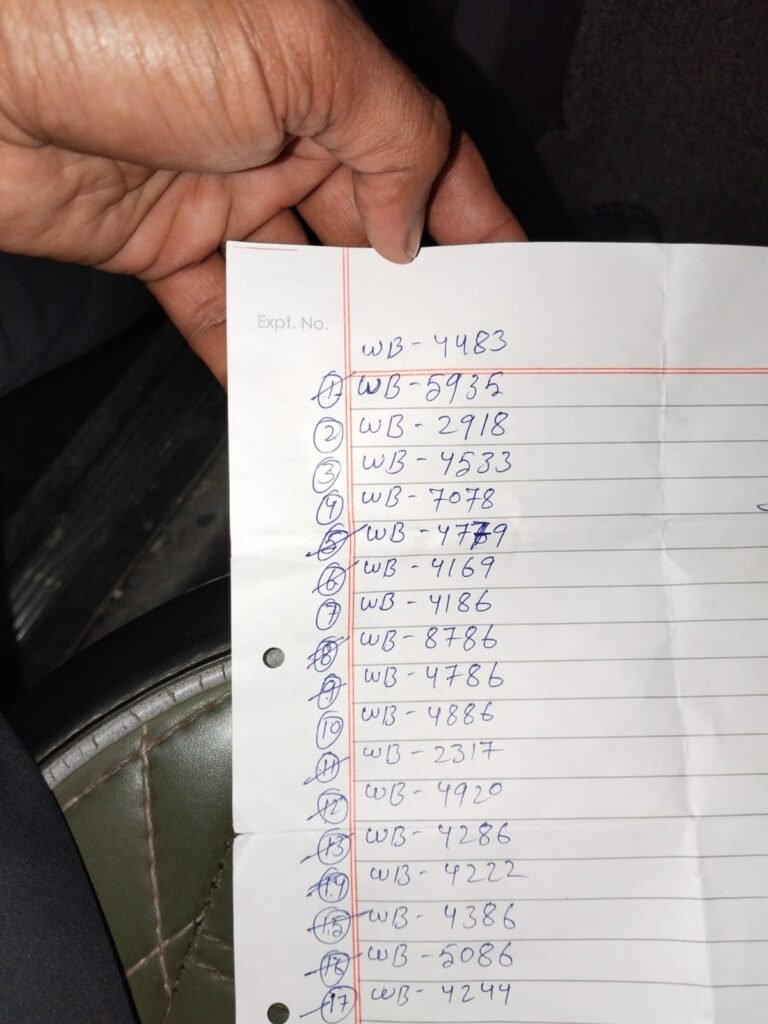 Expt. No.
WB - 4483
1 WB - 5935
2 WB - 2918
3 WB - 4533
4 WB - 7078
5 WB - 4779
6 WB - 4169
7 WB - 4186
8 WB - 8786
9 WB - 4786
10 WB - 4886
11 WB - 2317
12 WB - 4920
13 WB - 4286
14 WB - 4222
15 WB - 4386
16 WB - 5086
17 WB - 4244